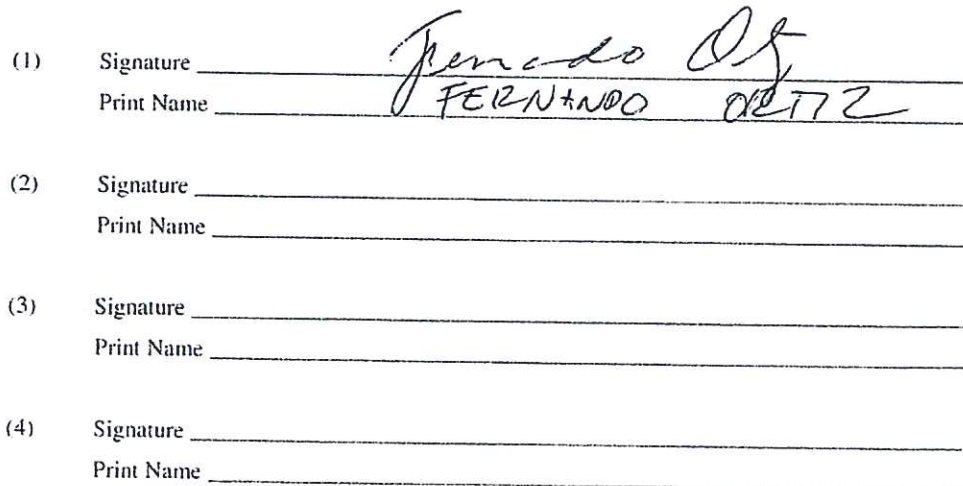 (1) Signature Fernando Ortiz
Print Name FERNANDO ORTIZ
(2) Signature
Print Name
(3) Signature
Print Name
(4) Signature
Print Name